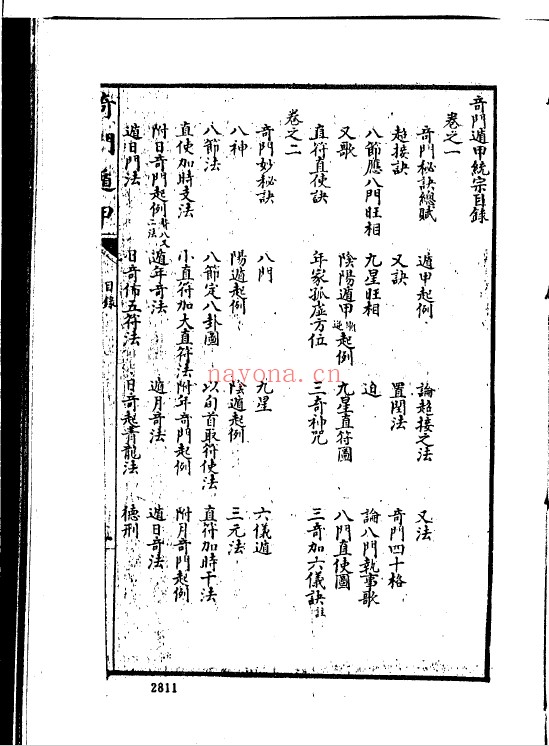 奇門遁甲統宗目錄
卷之一
奇門秘訣總賦 遁甲起例 論超接之法 又法
超接訣 又訣 置閏法 奇門四十格
八節應八門旺相 九星旺相 迫 論八門執事歌
又歌 陰陽遁甲順逆起例 九星直符圖 八門直使圖
直符直使訣 年家孤虛方位 三奇神咒 三奇加六儀訣註
卷之二
奇門妙秘訣 八門 九星 六儀遁
八神 陽遁起例 陰遁起例 三元法
八節法 八節定八卦圖 以旬首取符使法 直符加時干法
直使加時支法 小直符加大直符法 附年奇門起例 附月奇門起例
附日奇門起例 遁年奇法 遁月奇法 遁日奇法
遁日門法 日奇佈五符法 日奇起青龍法 德刑
奇門遁甲
目錄
nayona.cn
2811